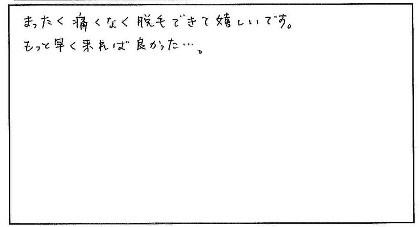 まったく痛くなく脱毛できて嬉しいです。
もっと早く来れば良かった…。